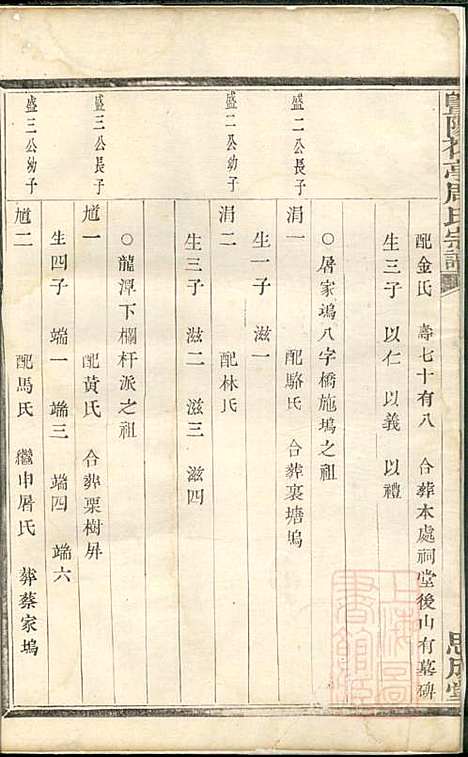 暨陽花亭周氏宗譜
配金氏 壽七十有八 合葬本處祠堂後山有墓碑
生三子 以仁 以義 以禮
○屠家塢八字橋施塢之祖
盛二公長子
涓一 配駱氏 合葬裏塘塢
生一子 滋一
盛二公幼子
涓二 配林氏
生三子 滋二 滋三 滋四
○龍潭下欄杆派之祖
盛三公長子
馗一 配黃氏 合葬栗樹屛
生四子 端一 端三 端四 端六
盛三公幼子
馗二 配馬氏 繼申屠氏 葬蔡家塢
思成堂
上海圖書館藏